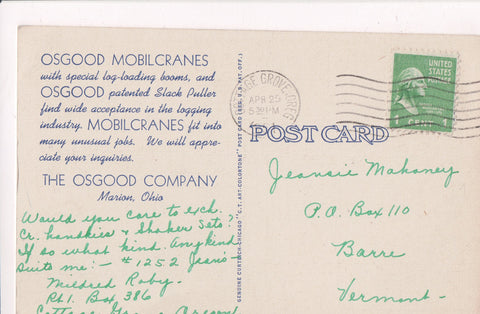 OSGOOD MOBILCRANES
with special log-loading booms, and
OSGOOD patented Slack Puller
find wide acceptance in the logging
industry. MOBILCRANES fit into
many unusual jobs. We will appre-
ciate your inquiries.
THE OSGOOD COMPANY
Marion, Ohio
Would you care to exch.
Cr. hankies & Shaker Sets?
If so what kind. Any kind
suits me:- #1252 Jeans-
Mildred Roby-
Rt. 1. Box 386
Cottage Grove Oregon
GENUINE CURTEICH-CHICAGO "C.T. ART-COLORTONE" POST CARD (REG. U.S. PAT. OFF.)
COTTAGE GROVE, OREG.
APR 25
5 PM
UNITED
STATES
POSTAGE
1 CENT 1
POST CARD
Jeansie Mahoney
P.O. Box 110
Barre
Vermont-